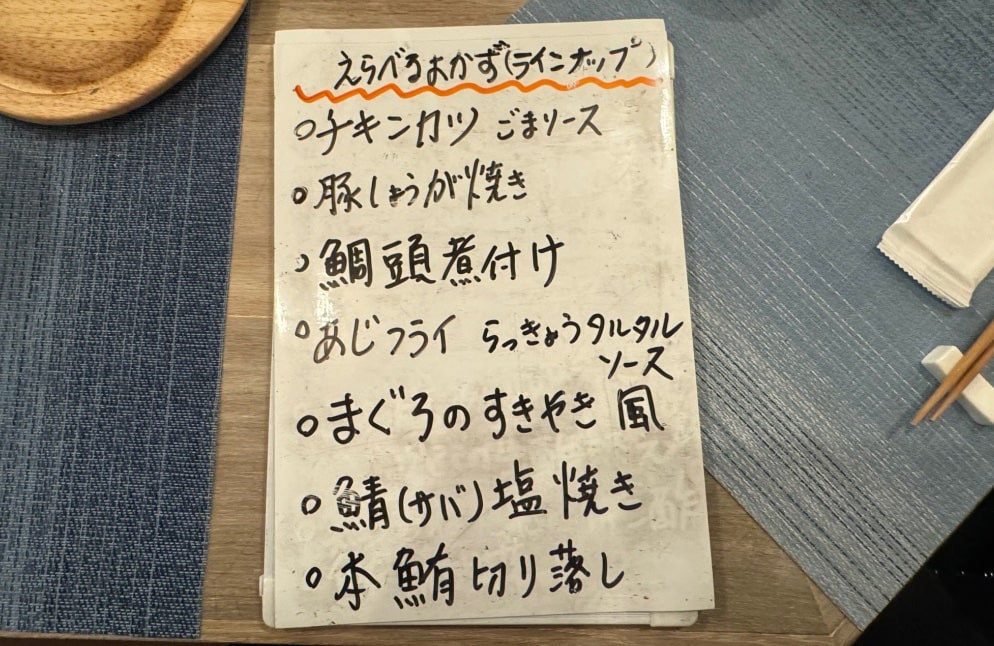 えらべるおかず(ラインナップ)
○チキンカツ ごまソース
○豚しょうが焼き
○鯛頭煮付け
○あじフライ らっきょうタルタル
ソース
○まぐろのすきやき風
○鯖(サバ)塩焼き
○本鮪切り落し